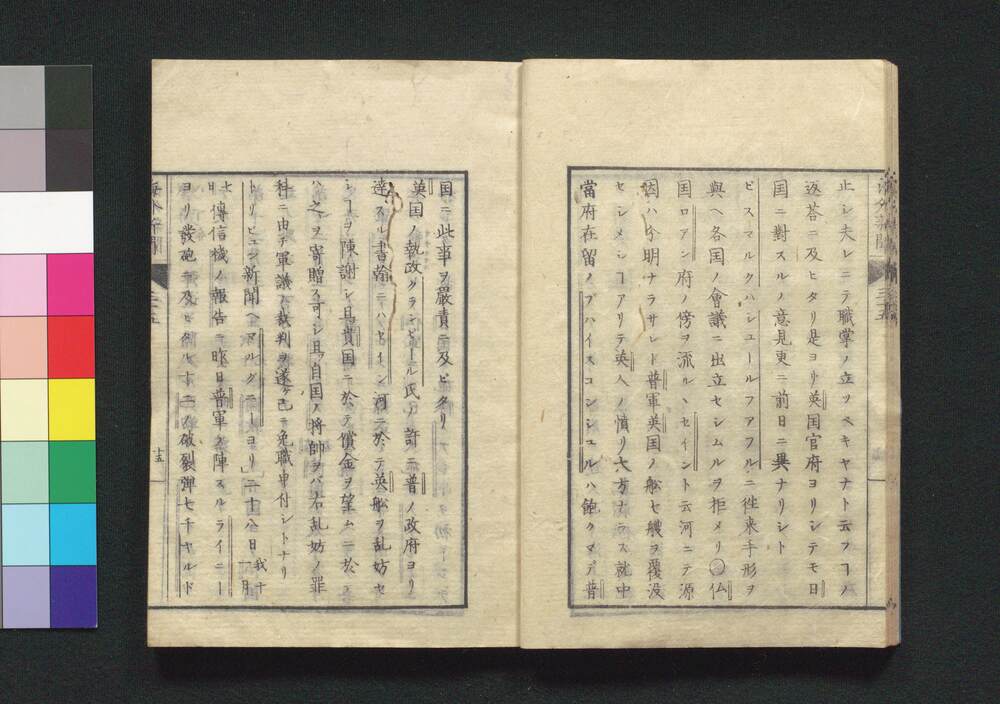 止シ夫レニテ職掌ノ立ツベキヤナト云フヿノ
返荅ニ及ヒタリ是ヨリ英国官府ヨリシテモ日
国ニ對スルノ意見更ニ前日ニ異ナリシト
ビスマルクハシユールフアフルニ徃来手形ヲ
與ヘ各国ノ會議ニ出立セシムルヲ拒メリ〇仏
国ロアン府ノ傍ヲ流ルヽセイント云河ニテ源
因ハ分明ナラサレト普軍英国ノ舩七艘ヲ覆没
セシメシヿアリテ英人ノ憤リ大方ナラス就中
當府在留ノブハイスコンシユルハ飽クマデ普
国ニ此事ヲ嚴責ニ及ヒタリ
英国ノ執政グランビール氏ノ許ニ普ノ政府ヨリ
達スル書翰ニハセイン河ニ於テ英舩ヲ乱妨セ
シヿヲ陳謝シ且貴国ニ於テ償金ヲ望ムニ於テ
ハ之ヲ寄贈ス可シ且自国ノ将帥ヲバ右乱妨ノ罪
科ニ由テ軍議ノ裁判ヲ遂ケ已ニ免職申付シトナリ
トリビユン新聞ヘマルグニーヨリ二十八日我十一月
七日傳信機ノ報告ニ昨日普軍ノ陣スルライニー
ヨリ發砲ニ及ビ各ヒ十二ノ破裂弾七千ヤルド
海外新聞
三十五
十五